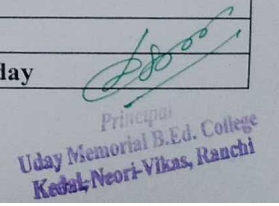 day
Principal
Uday Memorial B.Ed. College
Kedal, Neori-Vikas, Ranchi